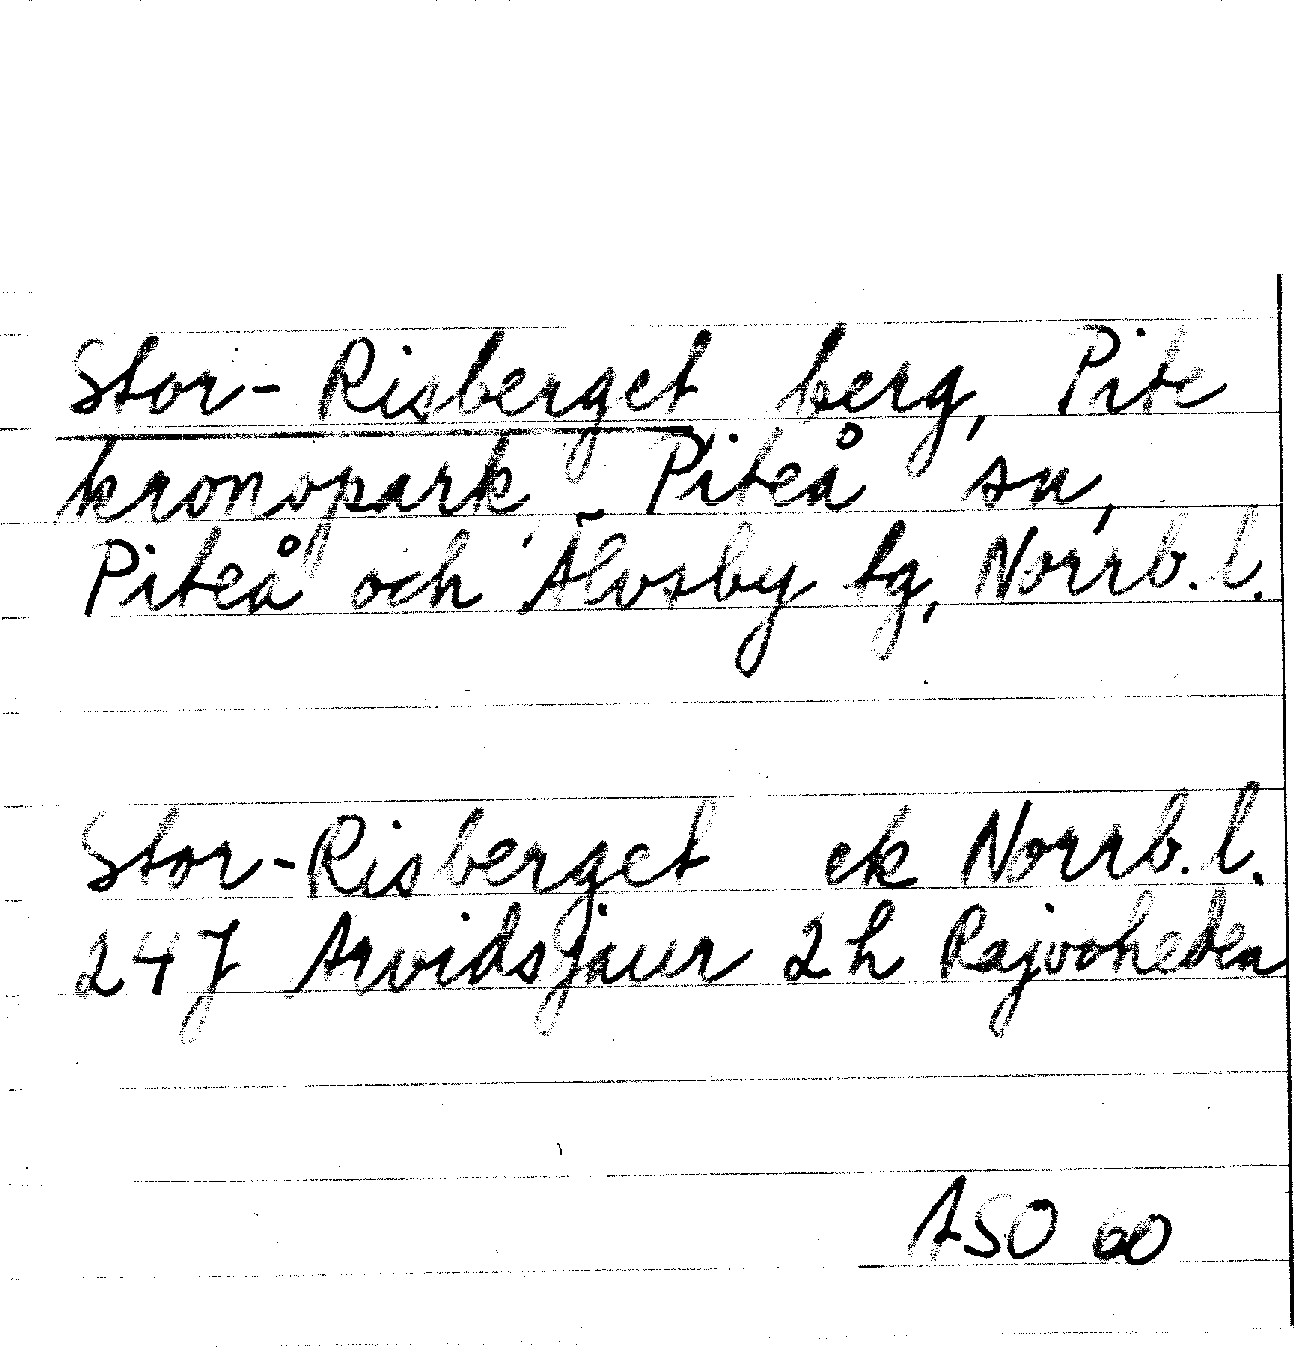 Stor-Risberget berg, Pite
kronopark, Piteå sn,
Piteå och Älvsby tg, Norrb. l.
Stor-Risberget ek Norrb. l.
24J Arvidsjaur 2h Rajvoheden
ASO 60